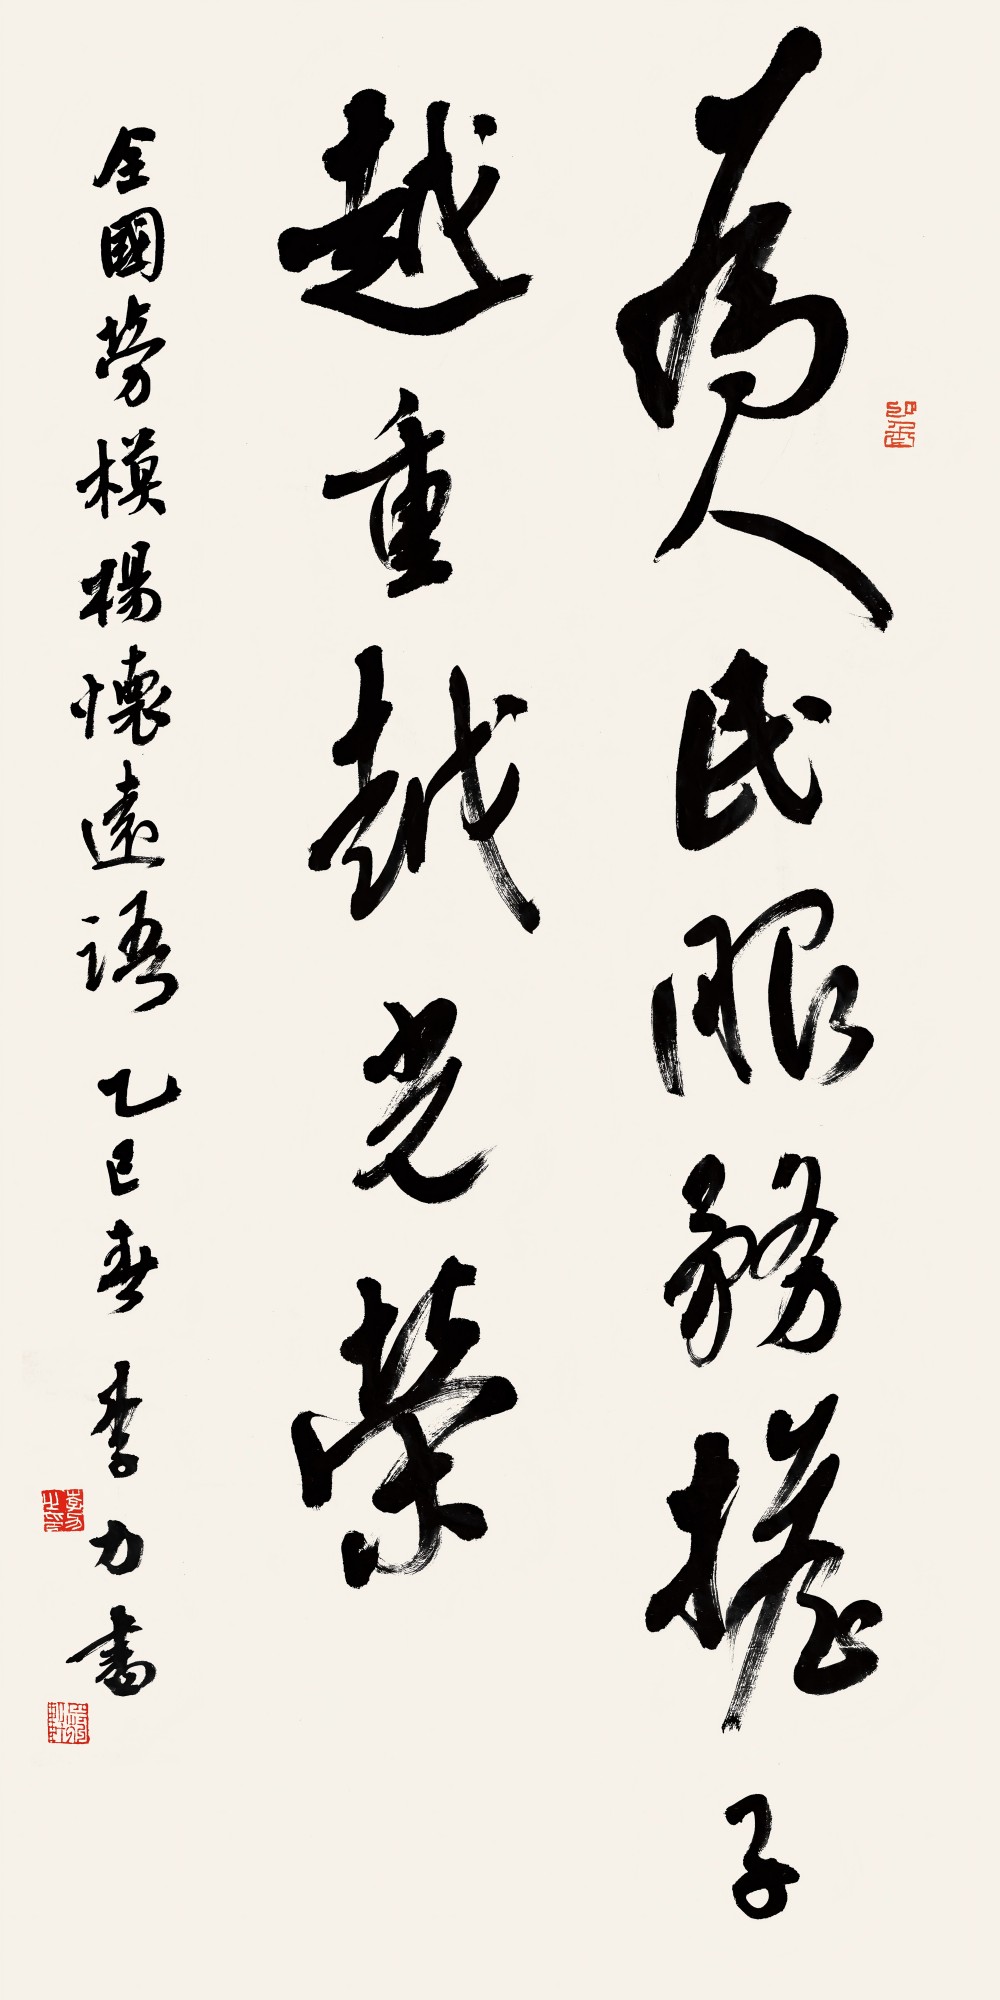 為人民服務擔子
越重越光榮
全國勞模楊懷遠語 乙巳春 李力書